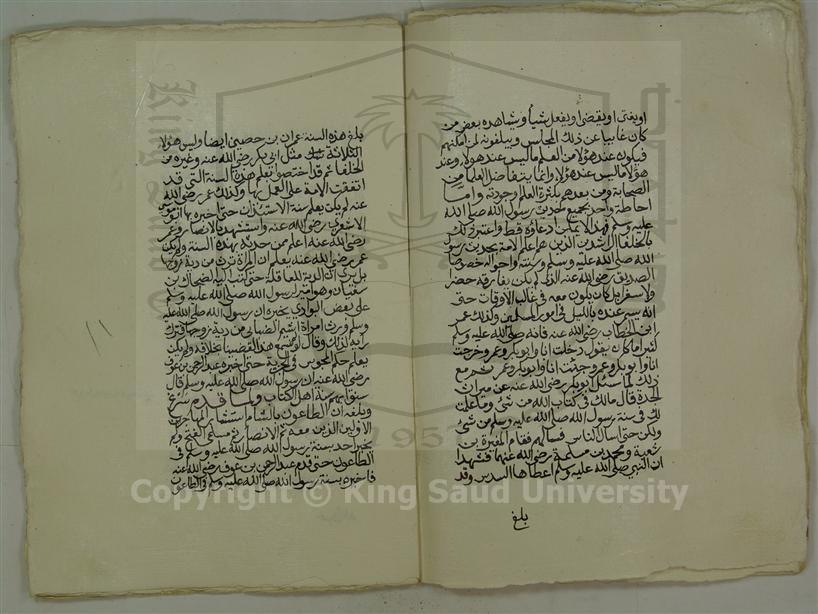 او يفتى او يقضى او يفعل شيأ ويشاهده بعض من
كان غايبا عن ذلك المجلس ويبلغونه لمن امكنهم
فيكون عند هؤلا من العلم ما ليس عند هولا، وعند
هؤلا ما ليس عند هؤلا، وانما يتفاضل العلما من
الصحابة ومن بعدهم بكثرة العلم وجودته واما
احاطة واحد بجميع حديث رسول الله صلى الله
عليه وسلم فهذا لا يمكن ادعاؤه قط واعتبر ذلك
بالخلفا الراشدين الذين هم اعلم الامة بحديث رسول
الله صلى الله عليه وسلم وسنته واحواله خصوصا
الصديق رضى الله عنه الذى لم يكن يفارقه حضر
ولا سفر بل كان يكون معه فى غالب الاوقات حتى
انه يسمر عنده بالليل فى امور المسلمين وكذلك عمر
ابن الخطاب رضى الله عنه فانه صلى الله عليه وسلم
كثيرا ما كان يقول دخلت انا وابوبكر وعمر وخرجت
انا وابوبكر وعمر وجئت انا وابوبكر وعمر ثم مع
ذلك لما سئل ابوبكر رضى الله عنه عن ميراث
الجدة قال مالك فى كتاب الله من شئ وما علمت
لك فى سنة رسول الله صلى الله عليه وسلم من شئ
ولكن حتى اسال الناس فسالهم فقام المغيرة بن
شعبة ومحمد بن مسلمة رضى الله عنهما فشهدا
ان النبي صلى الله عليه وسلم اعطاها السدس وقد
بلغ
بلغ هذه السنة عمران بن حصين ايضا وليس هؤلا
الثلاثة مثل ابى بكر رضى الله عنه وغيره من
الخلفا ثم قد اختصوا بعلم هذه السنة التى قد
اتفقت الامة على العمل بها وكذلك عمر رضى الله
عنه لم يكن يعلم سنة الاستئذان حتى اخبره بها ابو موسى
الاشعرى رضى الله عنه واستشهد بالانصار وعمر
رضى الله عنه اعلم من حدثه بهذه السنة ولم يكن
عمر رضى الله عنه يعلم ان المراة ترث من دية زوجها
بل يرى ان الدية للعاقلة حتى كتب اليه الضحاك بن
سفيان وهو امير لرسول الله صلى الله عليه وسلم
على بعض البوادي يخبره ان رسول الله صلى الله عليه
وسلم ورث امراة اشيم الضبابي من دية زوجها فترك
رايه لذلك وقال لو لم نسمع هذا لقضينا بخلافه ولم يكن
يعلم حكم المجوس فى الجزية حتى اخبره عبد الرحمن بن عوف
رضى الله عنه ان رسول الله صلى الله عليه وسلم قال
سنوا بهم سنة اهل الكتاب ولما قدم سرغ
وبلغه ان الطاعون بالشام استشار المهاجرين
الاولين الذين معه ثم الانصار ثم مسلمة الفتح ولم
يخبر احد بسنة رسول الله صلى الله عليه وسلم فى
الطاعون حتى قدم عبد الرحمن بن عوف رضى الله عنه
فاخبره بسنة رسول الله صلى الله عليه وسلم فى الطاعون
Copyright © King Saud University
1957